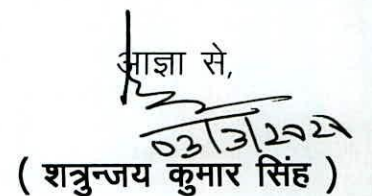 आज्ञा से,
03/3/2021
( शत्रुन्जय कुमार सिंह )